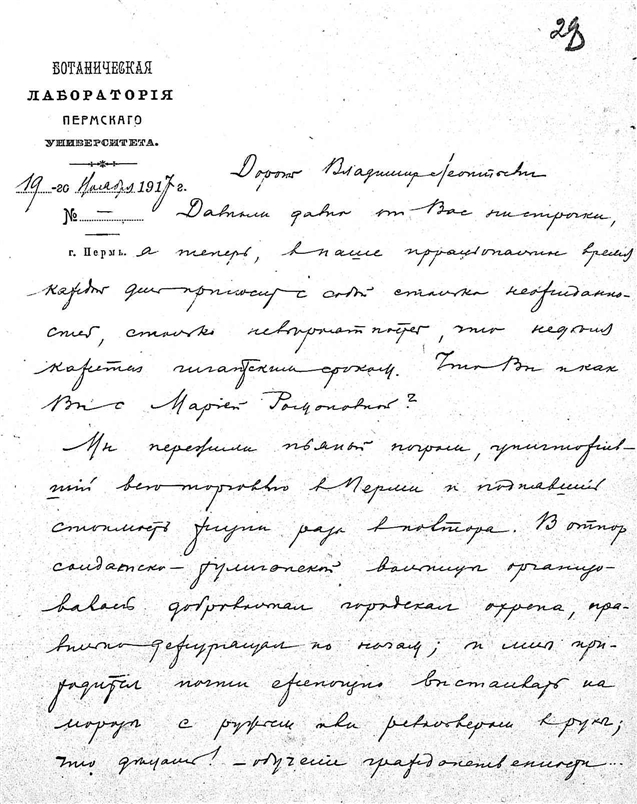 29
БОТАНИЧЕСКАЯ
ЛАБОРАТОРІЯ
ПЕРМСКАГО
УНИВЕРСИТЕТА.
19 -го Ноября 1917 г.
№ —
г. Пермь.
Дорогой Владимир Леонтьевич
Давным давно от Вас ни строчки,
а теперь, в наше время
каждый день приносит с собой столько неожиданно-
стей, столько невероятностей, что неделя
кажется гигантским сроком. Что Вы и как
Вы с Маріей Романовной?
Мы пережили пьяный погром, уничтожив-
шій всю торговлю в Перми и поднявшій
стоимость жизни раза в полтора. В отпор
солдатско-хулиганской вольницы организо-
валась добровольная городская охрана, пра-
вильно дежурящая по ночам; и мне при-
ходится почти еженощно выстаивать на
морозе с ружьем или револьвером в руке;
что делать! — обученіе гражданственности...